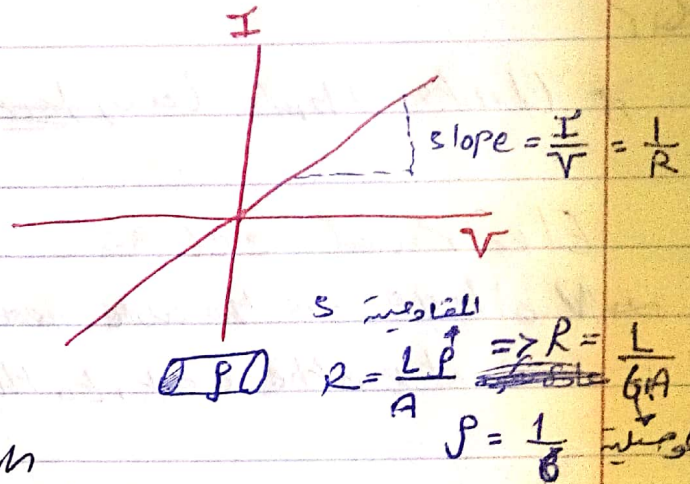 I
slope = I/V = 1/R
V
المقاومية
ρ R = Lρ/A => R = L/σA
ρ = 1/σ